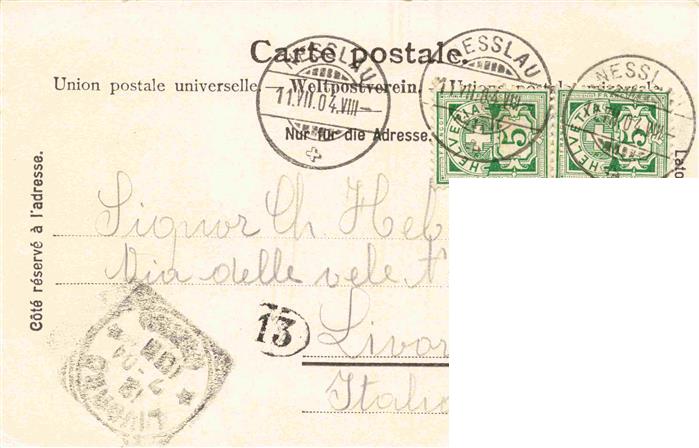 Carte postale.
Union postale universelle. Weltpostverein.
Nur für die Adresse.
Côté réservé à l'adresse.
NESSLAU
11.VII.04.VIII–
NESSLAU
NESSLAU
HELVETIA
5
HELVETIA
5
Signor Ch.
Via delle vele
13
Italia
LIVORNO